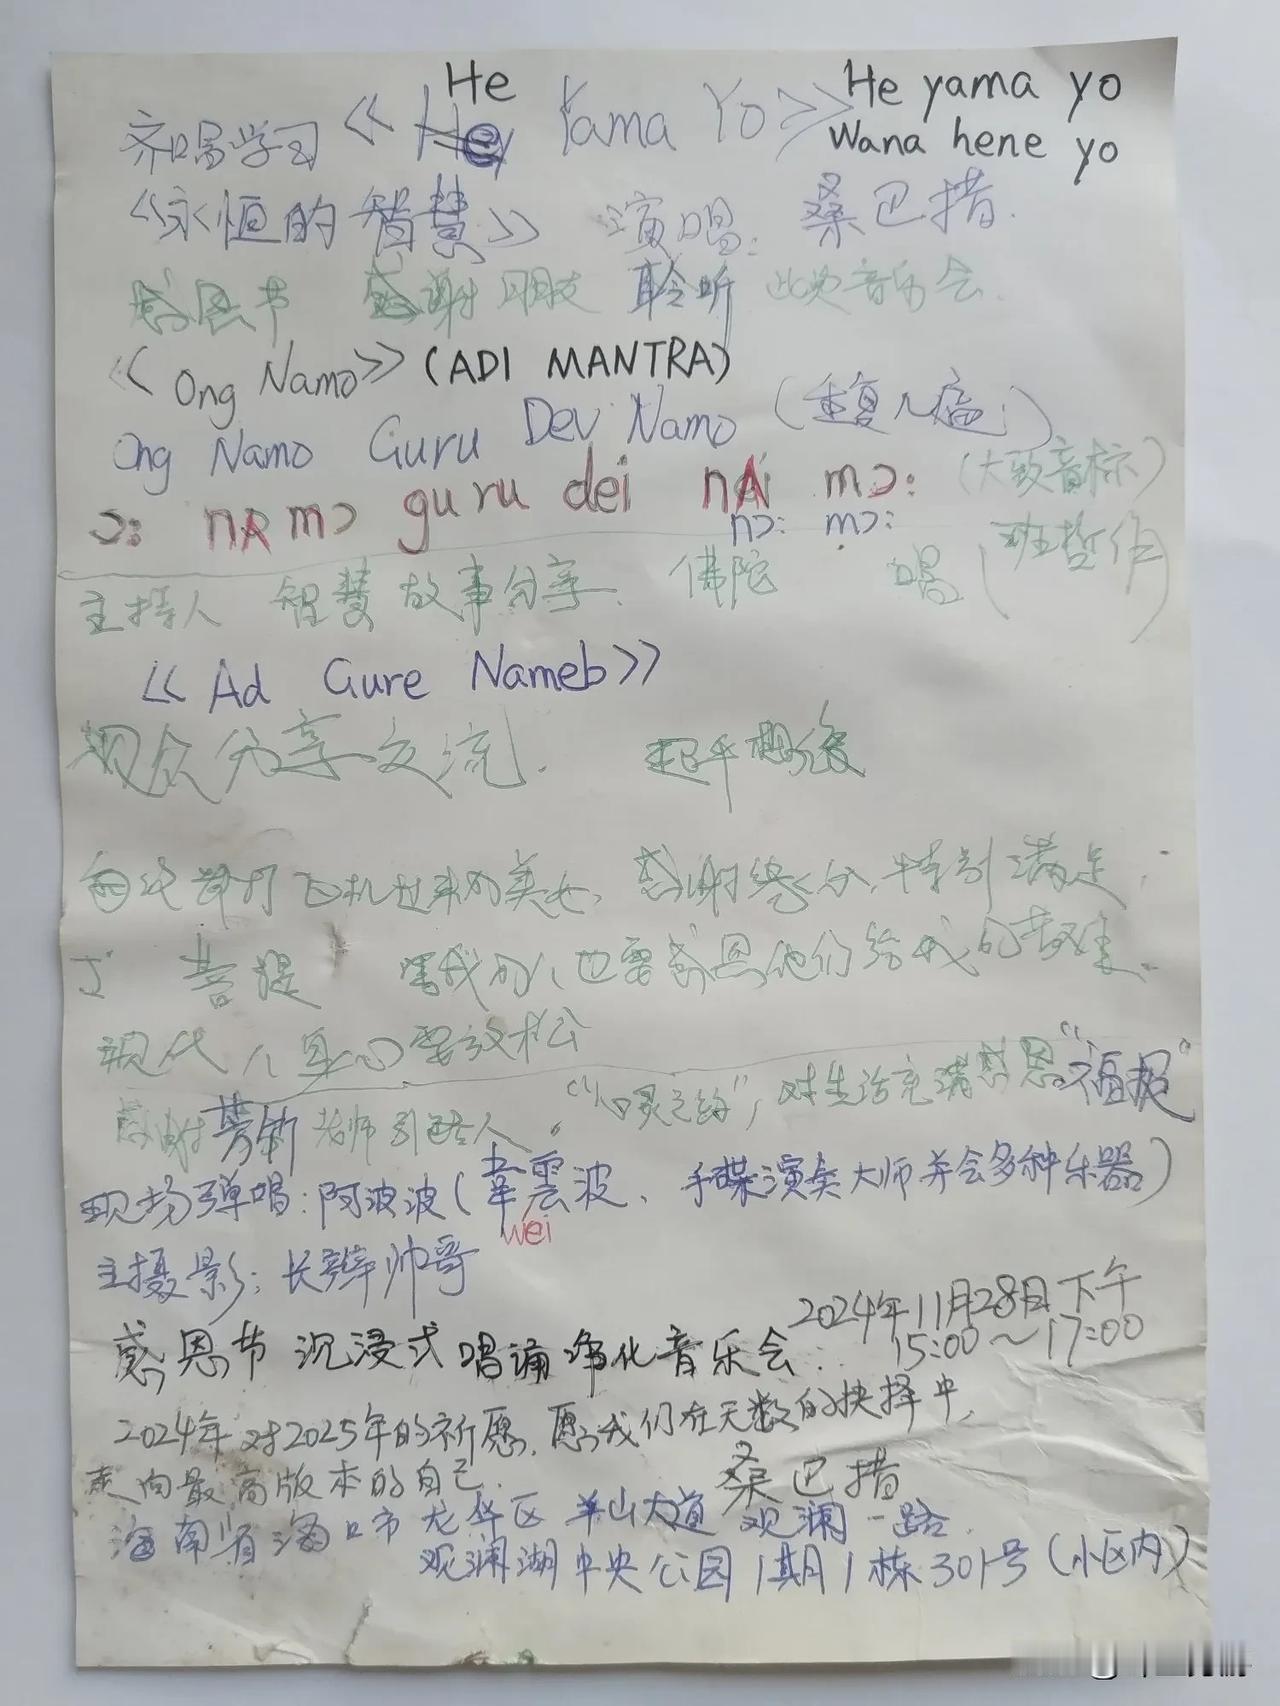 He
齐唱学习 《Hey Yama Yo》 He yama yo
Wana hene yo
《永恒的智慧》 演唱: 桑巴措.
感恩节 感谢朋友 聆听 此央音乐会.
《Ong Namo》(ADI MANTRA)
Ong Namo Guru Dev Namo (重复几遍)
ɔ: nʌmɔ guru dei nʌi mɔ: (大致音标)
nɔ: mɔ:
主持人 智慧故事分享. 佛陀 唱 (班哲作)
《Ad Gure Nameb》
观众分享交流.
打飞机过来的美女, 感谢缘分, 特别满足,
菩提 害我的人也要感恩他们给我的
现代人身心要放松
感谢 芳新 老师引路人. "心灵之约", 对生活充满感恩"福报"
现场弹唱: 阿波波(韋震波、手碟演奏大师并会多种乐器)
wei
主摄影: 长辫帅哥
2024年11月28日下午
15:00～17:00
感恩节 沉浸式 唱诵净化音乐会:
2024年对2025年的祈愿. 愿我们在无数的抉择中,
走向最高版本的自己. 桑巴措
海南省海口市龙华区 羊山大道 观澜一路.
观澜湖中央公园1期1栋301号(小区内)